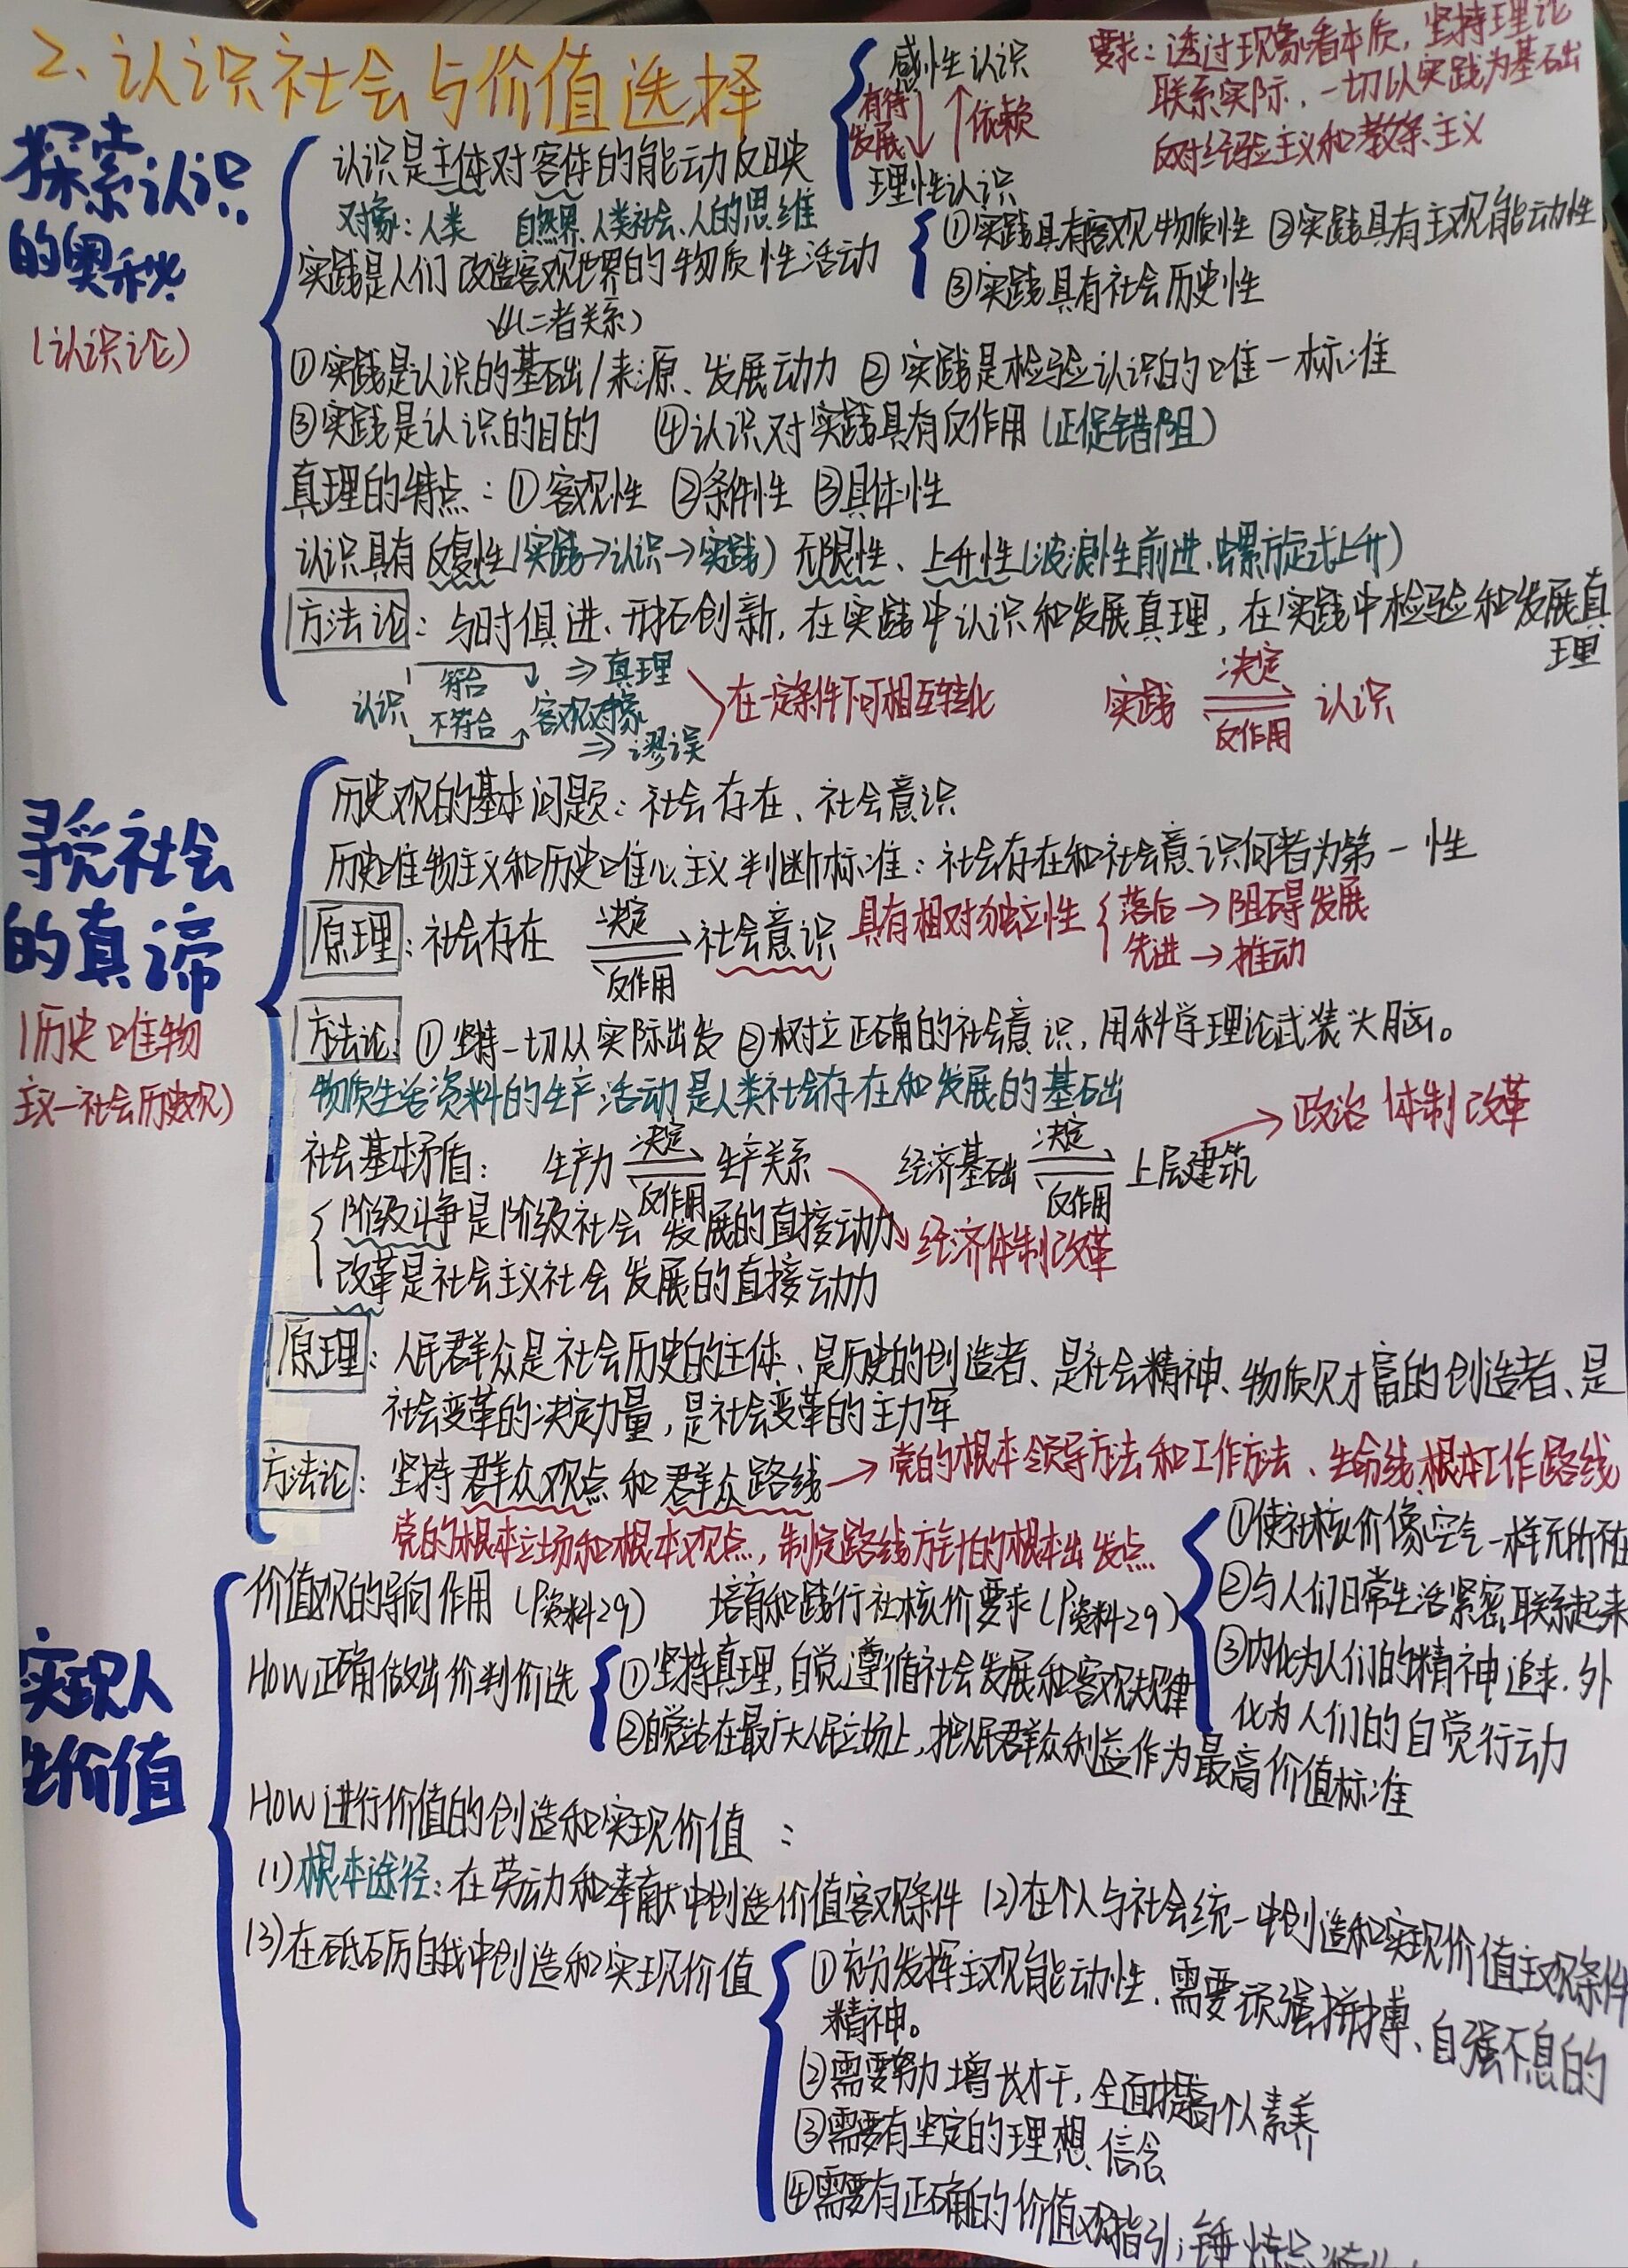 2、认识社会与价值选择
探索认识
的奥秘
(认识论)
认识是主体对客体的能动反映
对象：人类 自然界、人类社会、人的思维
感性认识
有待发展↓ ↑依赖
理性认识
要求：透过现象看本质，坚持理论
联系实际，一切以实践为基础
反对经验主义和教条主义
实践是人们改造客观世界的物质性活动
①实践具有客观物质性 ②实践具有主观能动性
③实践具有社会历史性
(二者关系)
①实践是认识的基础/来源、发展动力 ②实践是检验认识的唯一标准
③实践是认识的目的 ④认识对实践具有反作用(正促错阻)
真理的特点：①客观性 ②条件性 ③具体性
认识具有反复性(实践→认识→实践) 无限性、上升性(波浪性前进、螺旋式上升)
方法论：与时俱进、开拓创新，在实践中认识和发展真理，在实践中检验和发展真
理
认识 符合 不符合 客观对象 ⇒真理 ⇒谬误 在一定条件下可相互转化
实践 决定 反作用 认识
寻觅社会
的真谛
(历史唯物
主义—社会历史观)
历史观的基本问题：社会存在、社会意识
历史唯物主义和历史唯心主义判断标准：社会存在和社会意识何者为第一性
原理：社会存在 决定 反作用 社会意识 具有相对独立性 落后→阻碍发展
先进→推动
方法论：①坚持一切从实际出发 ②树立正确的社会意识，用科学理论武装头脑。
物质生活资料的生产活动是人类社会存在和发展的基础
社会基本矛盾：生产力 决定 反作用 生产关系 经济基础 决定 反作用 上层建筑 →政治体制改革
阶级斗争是阶级社会发展的直接动力 经济体制改革
改革是社会主义社会发展的直接动力
原理：人民群众是社会历史的主体、是历史的创造者、是社会精神、物质财富的创造者、是
社会变革的决定力量，是社会变革的主力军
方法论：坚持群众观点和群众路线→党的根本领导方法和工作方法、生命线，根本工作路线
党的根本立场和根本观点，制定路线方针的根本出发点
实现人
生价值
价值观的导向作用(P资料29) 培育和践行社核价要求(P资料29)
①使社核价像空气一样无所不在
②与人们日常生活紧密联系起来
③内化为人们的精神追求，外
化为人们的自觉行动
How正确做出价判价选
①坚持真理，自觉遵循社会发展和客观规律
②自觉站在最广大人民立场上，把人民群众利益作为最高价值标准
How进行价值的创造和实现价值：
(1)根本途径：在劳动和奉献中创造价值客观条件 (2)在个人与社会统一中创造和实现价值主观条件
(3)在砥砺自我中创造和实现价值
①充分发挥主观能动性、需要顽强拼搏、自强不息的
精神。
②需要努力增长才干，全面提高个人素养
③需要有坚定的理想、信念
④需要有正确的价值观指引；锤炼